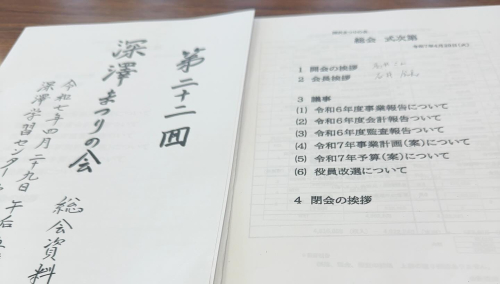 第二十二回
深澤まつりの会
総会資料
令和七年四月二十九日
深澤学習センター
総会 式次第
1 開会の挨拶
2 会長挨拶
3 議事
(1) 令和6年度事業報告について
(2) 令和6年度会計報告について
(3) 令和6年度監査報告について
(4) 令和7年度事業計画(案)について
(5) 令和7年予算(案)について
(6) 役員改選について
4 閉会の挨拶